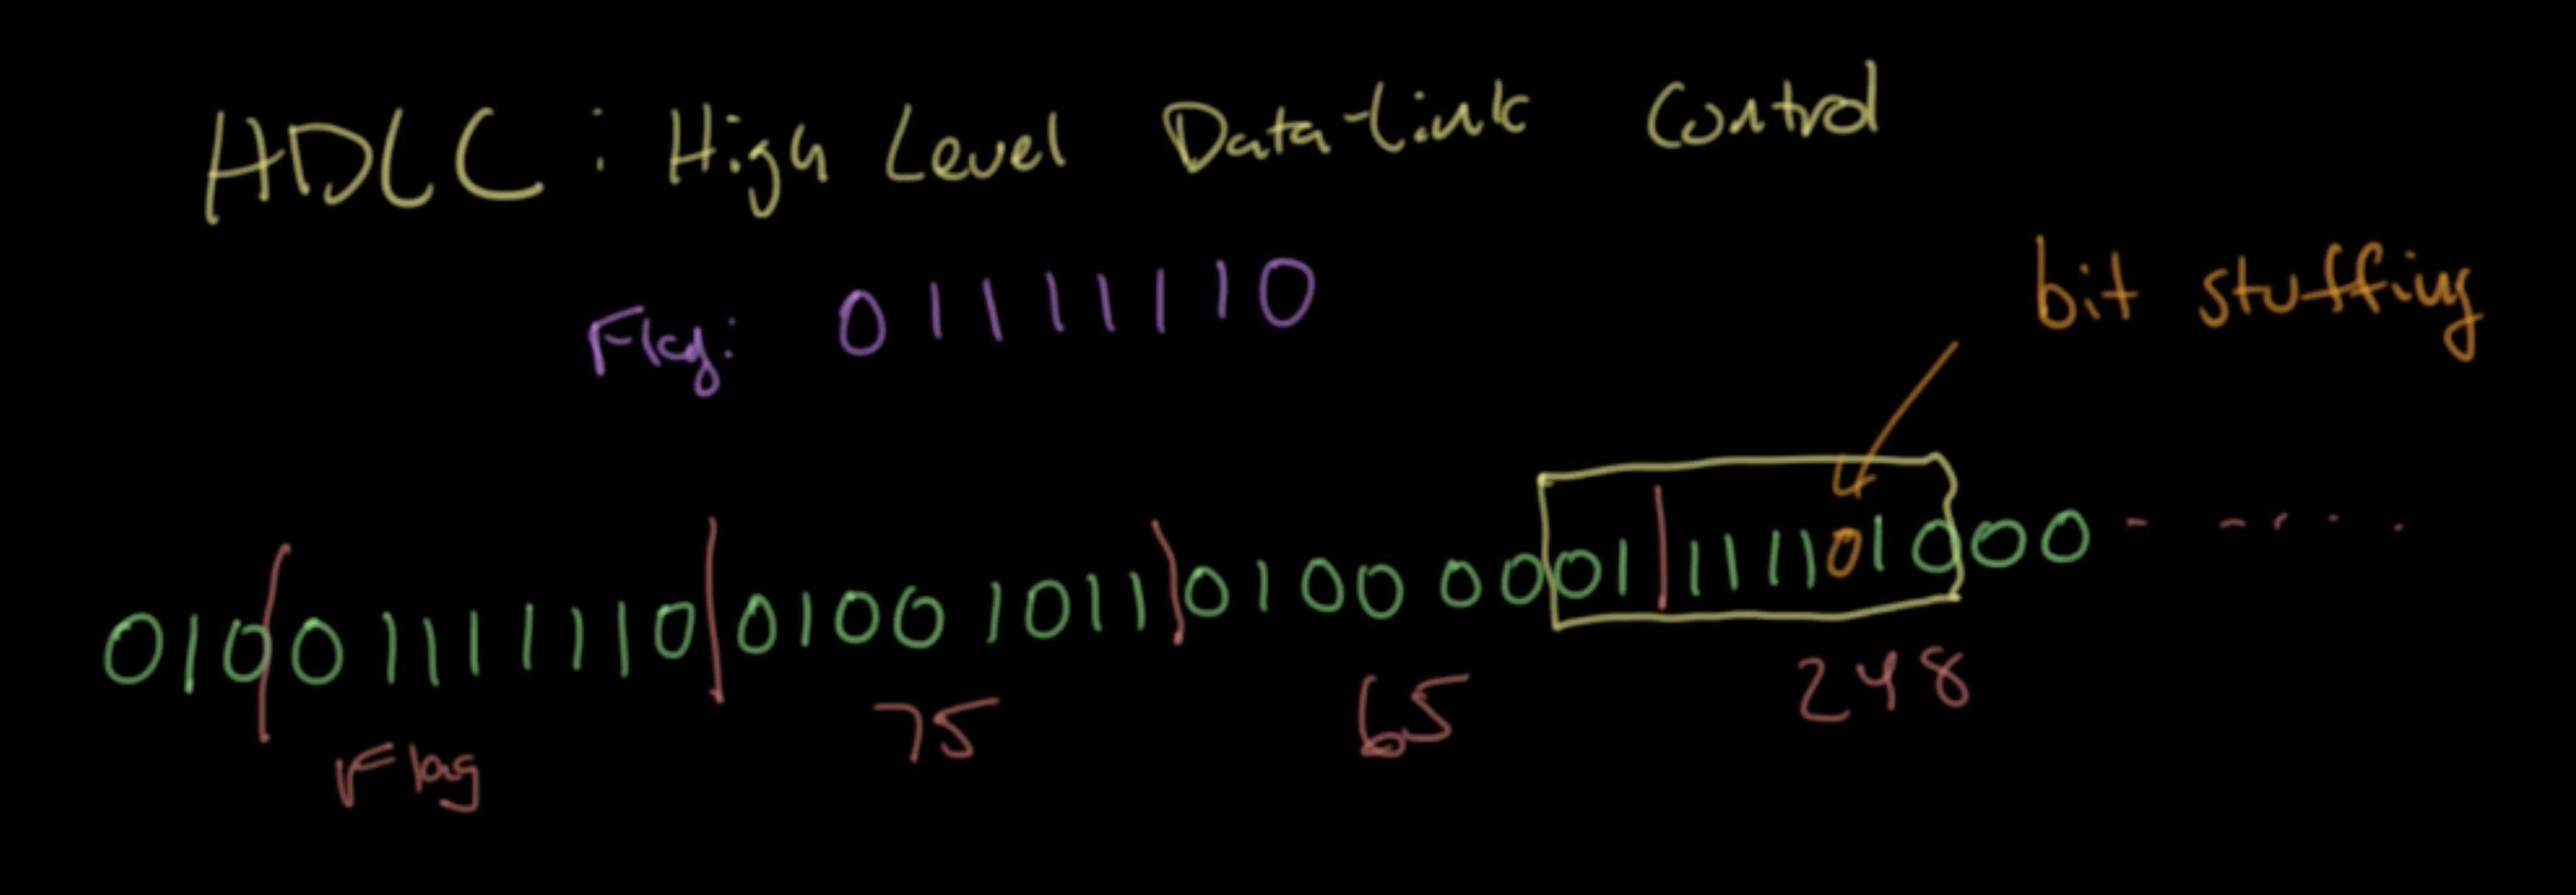 HDLC : High Level Data-Link Control
Flag: 01111110
bit stuffing
010 01111110 01001011 01000001 111101000 - - - - -
Flag 75 65 248